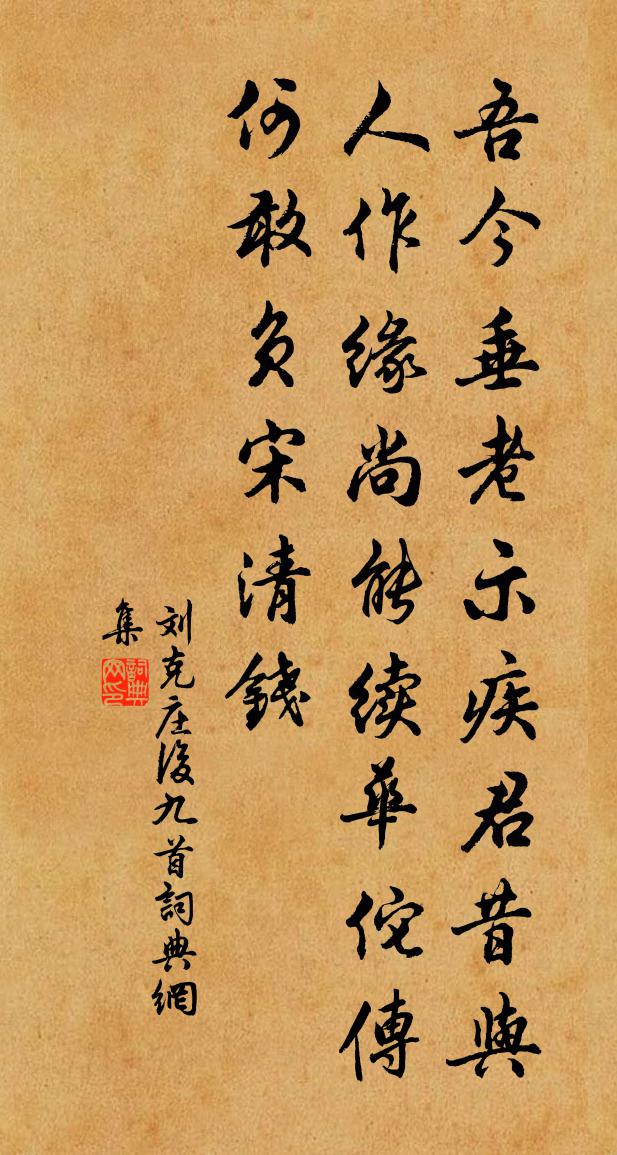 吾今垂老示疾君昔與
人作緣尚能續華佗傳
何敢负宋清錢
刘克庄後九首詞典網
集
詞典网印